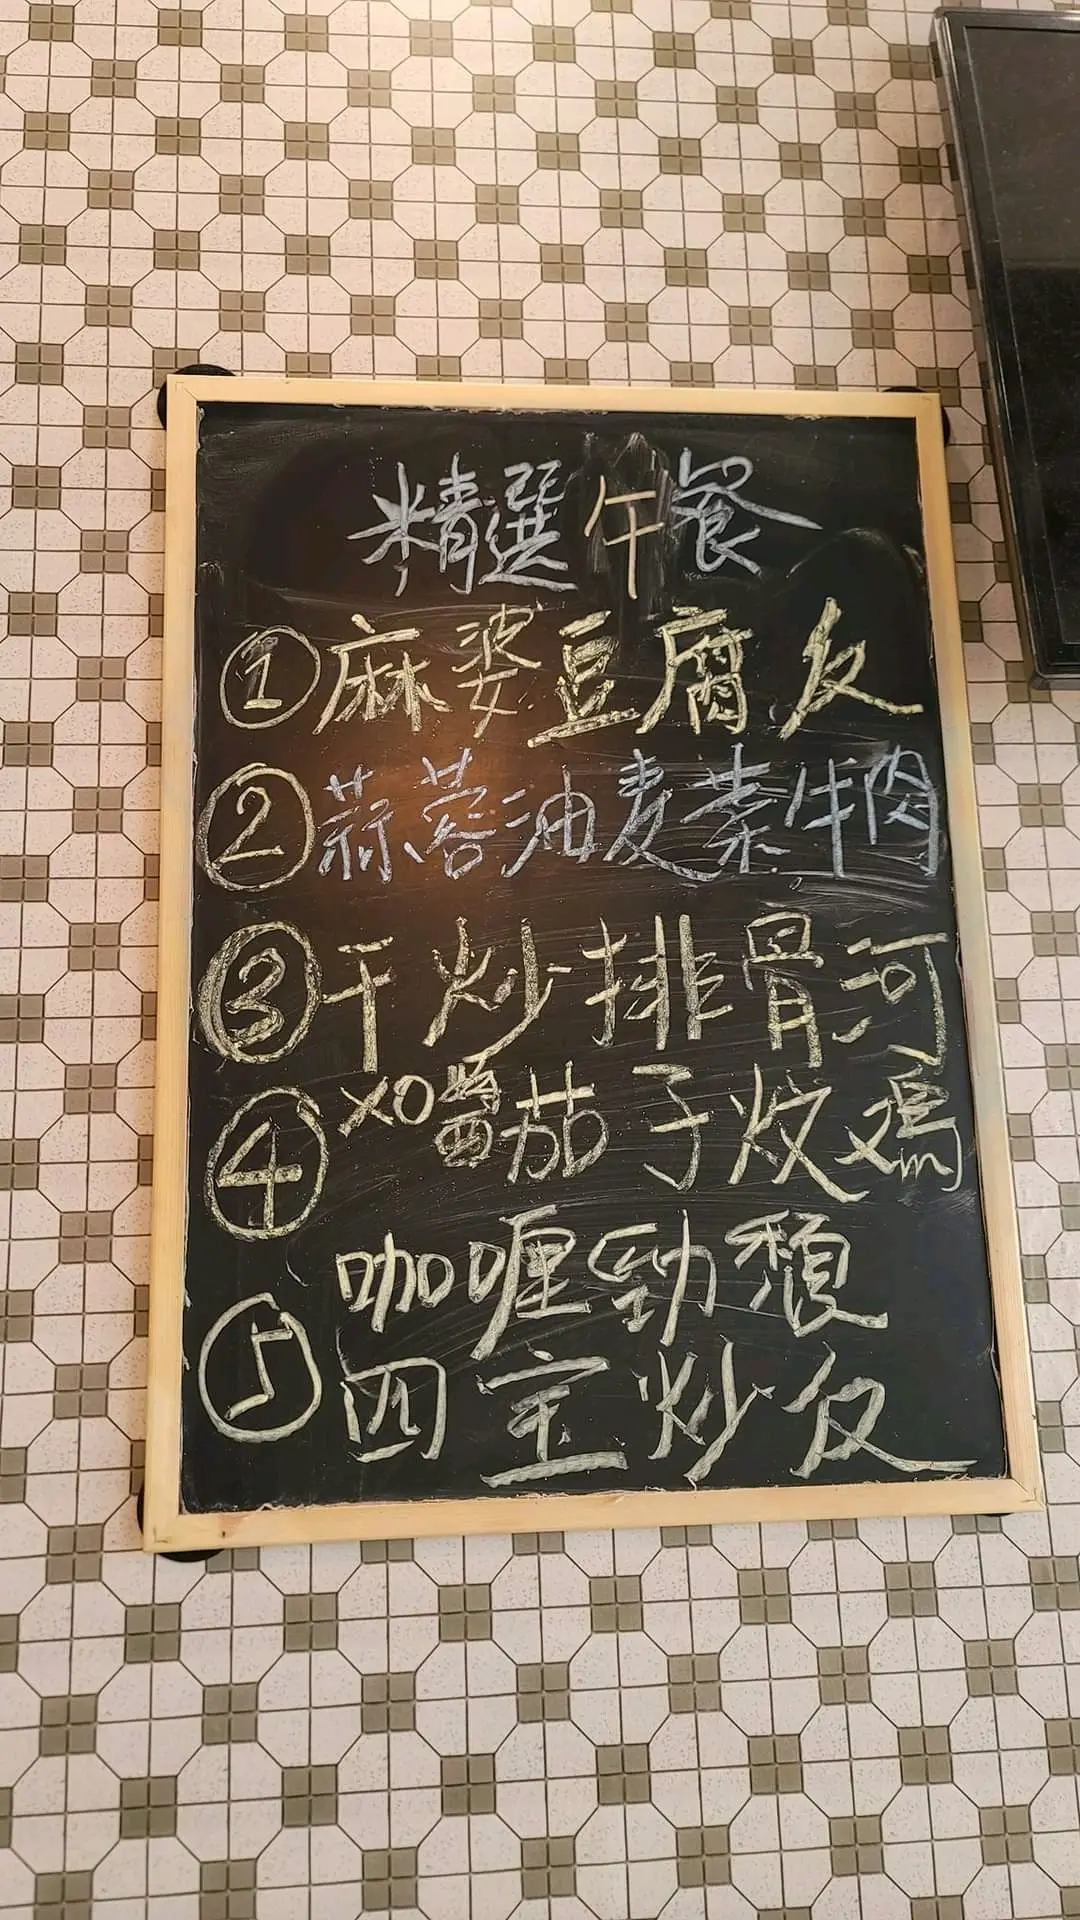 精選午餐
①麻婆豆腐反
②蒜蓉油麦菜牛肉
③干炒排骨河
④XO醬茄子炆鸡
咖喱勁頹
⑤四宝炒反